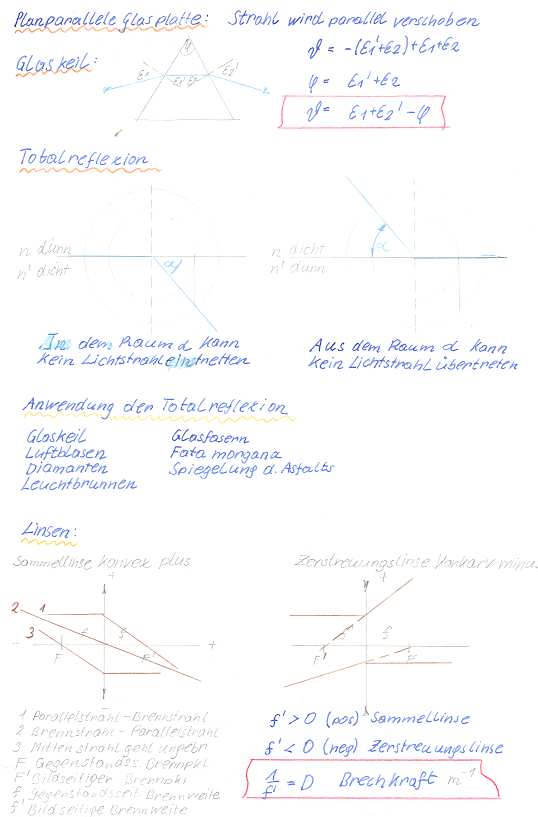 Planparallele Glasplatte: Strahl wird parallel verschoben
ϑ = -(ε1'+ε2)+ε1+ε2
Glaskeil:
φ
ε1 ε1' ε2 ε2'
φ = ε1'+ε2
ϑ = ε1+ε2'-φ
Totalreflexion
n dünn
n' dicht
α
n dicht
n' dünn
α
In dem Raum α kann
kein Lichtstrahl eintretten
Aus dem Raum α kann
kein Lichtstrahl übertreten
Anwendung der Totalreflexion
Glaskeil Glasfasern
Luftblasen Fata morgana
Diamanten Spiegelung d. Asfalts
Leuchtbrunnen
Linsen:
Sammellinse konvex plus
Zerstreuungslinse konkav minus
+
2 1
3
f f'
- F F' +
-
+
F' F
1 Parallelstrahl-Brennstrahl
2 Brennstrahl-Parallelstrahl
3 Mittenstrahl geht ungebr
F Gegenstandss Brennpkt
F' Bildseitiger Brennpkt
f Gegenstandsseit Brennweite
f' Bildseitige Brennweite
f' > 0 (pos) Sammellinse
f' < 0 (neg) Zerstreuungslinse
1/f' = D Brechkraft m⁻¹